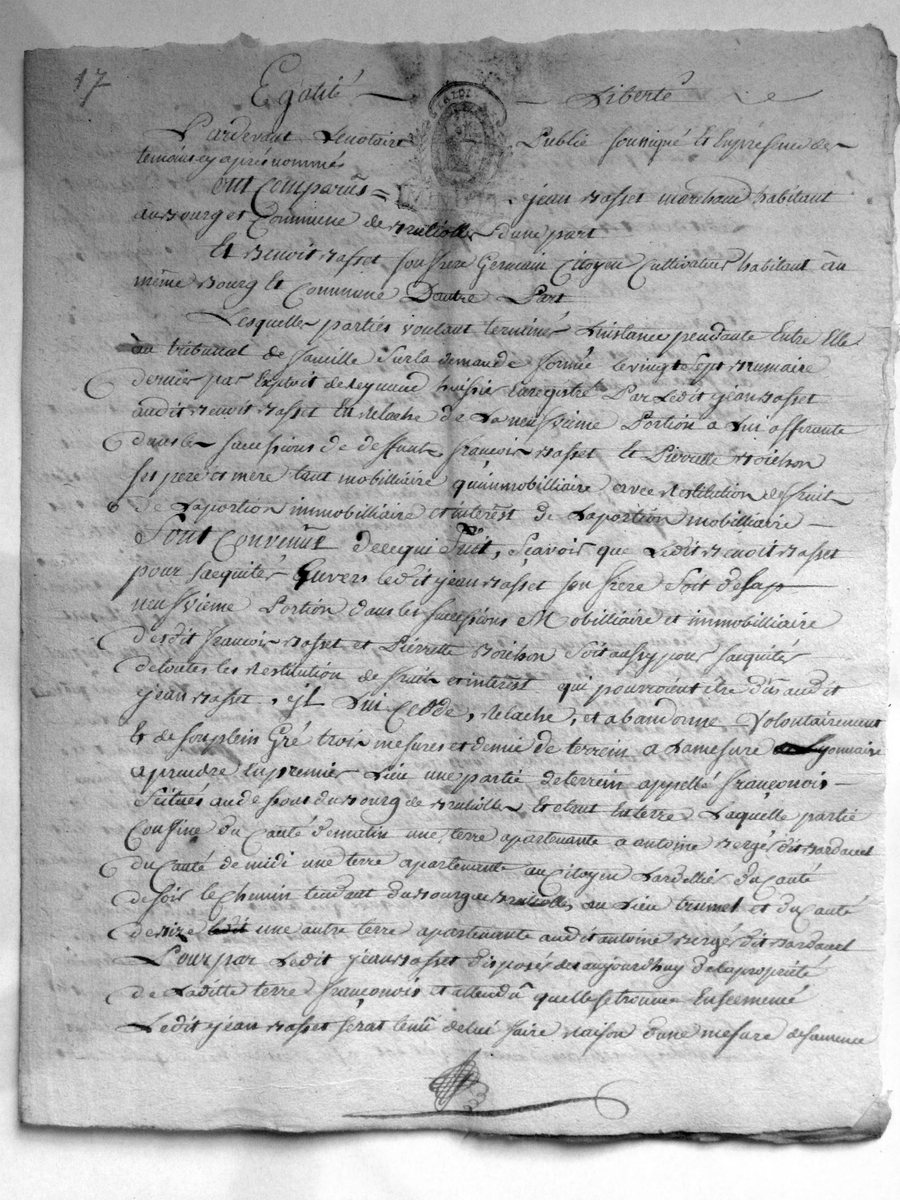 17
Egalité Liberté
Pardevant Le notaire Public soussigné Et En présence des
temoins cy apres nommés
ont Comparûs = jean Basset marchand habitant
au Bourg et Commune de d'une part
Et Benoit Basset son frere Germain Citoyen Cultivateur habitant au
même Bourg et Commune D'autre Part
Lesquelles parties voulant terminér L'instance pendante Entre Elle
au tribunal de famille Sur la demande formée le vingt Sept Brumaire
dernier par Exploit de huissier Enregistré Par Ledit jean Basset
audit Benoit Basset En relache de La neufvieme Portion a Lui afferante
dans les successions de deffunts françois Basset et Pierrette Boichon
ses pere et mere tant mobilliaire qu'immobilliaire avec Restitution de fruit
de La portion immobilliaire et interest de La portion mobilliaire
Sont Convenûs de ce qui Suit, Sçavoir que Ledit Benoit Basset
pour s'acquiter Envers le dit jean Basset son frere Soit de sa
neufvieme Portion dans les successions Mobilliaire et immobilliaire
desdit françois Basset et Pierrette Boichon Soit aussy pour s'acquiter
de toutes les Restitution de fruit et interest qui pourroient être dûs audit
jean Basset, il Lui Cedde, Relache, et abandonne Volontairement
Et de son plein Gré trois mesures et demie de terrein a La mesure Lyonnaire
a prendre En premier Lieu une partie de terrein appellé françonois
Situés au dessous du Bourg de Et etant En terre Laquelle partie
Confine du Cauté de matin une terre apartenante a antoine Bergé dit Bardanel
du Cauté de midi une terre apartenante au Citoyen Lardellier du Cauté
de soir le Chemin tendant du Bourg de au Lieu trumel et du Cauté
de bize une autre terre apartenante audit antoine Bergé dit Bardanel
Pour par Ledit jean Basset disposér des aujourdhuy de La propriété
de Laditte terre françonois et attendû quelle se trouve Ensemencé
Ledit jean Basset serat tenû de lui faire Raison d'une mesure de semence